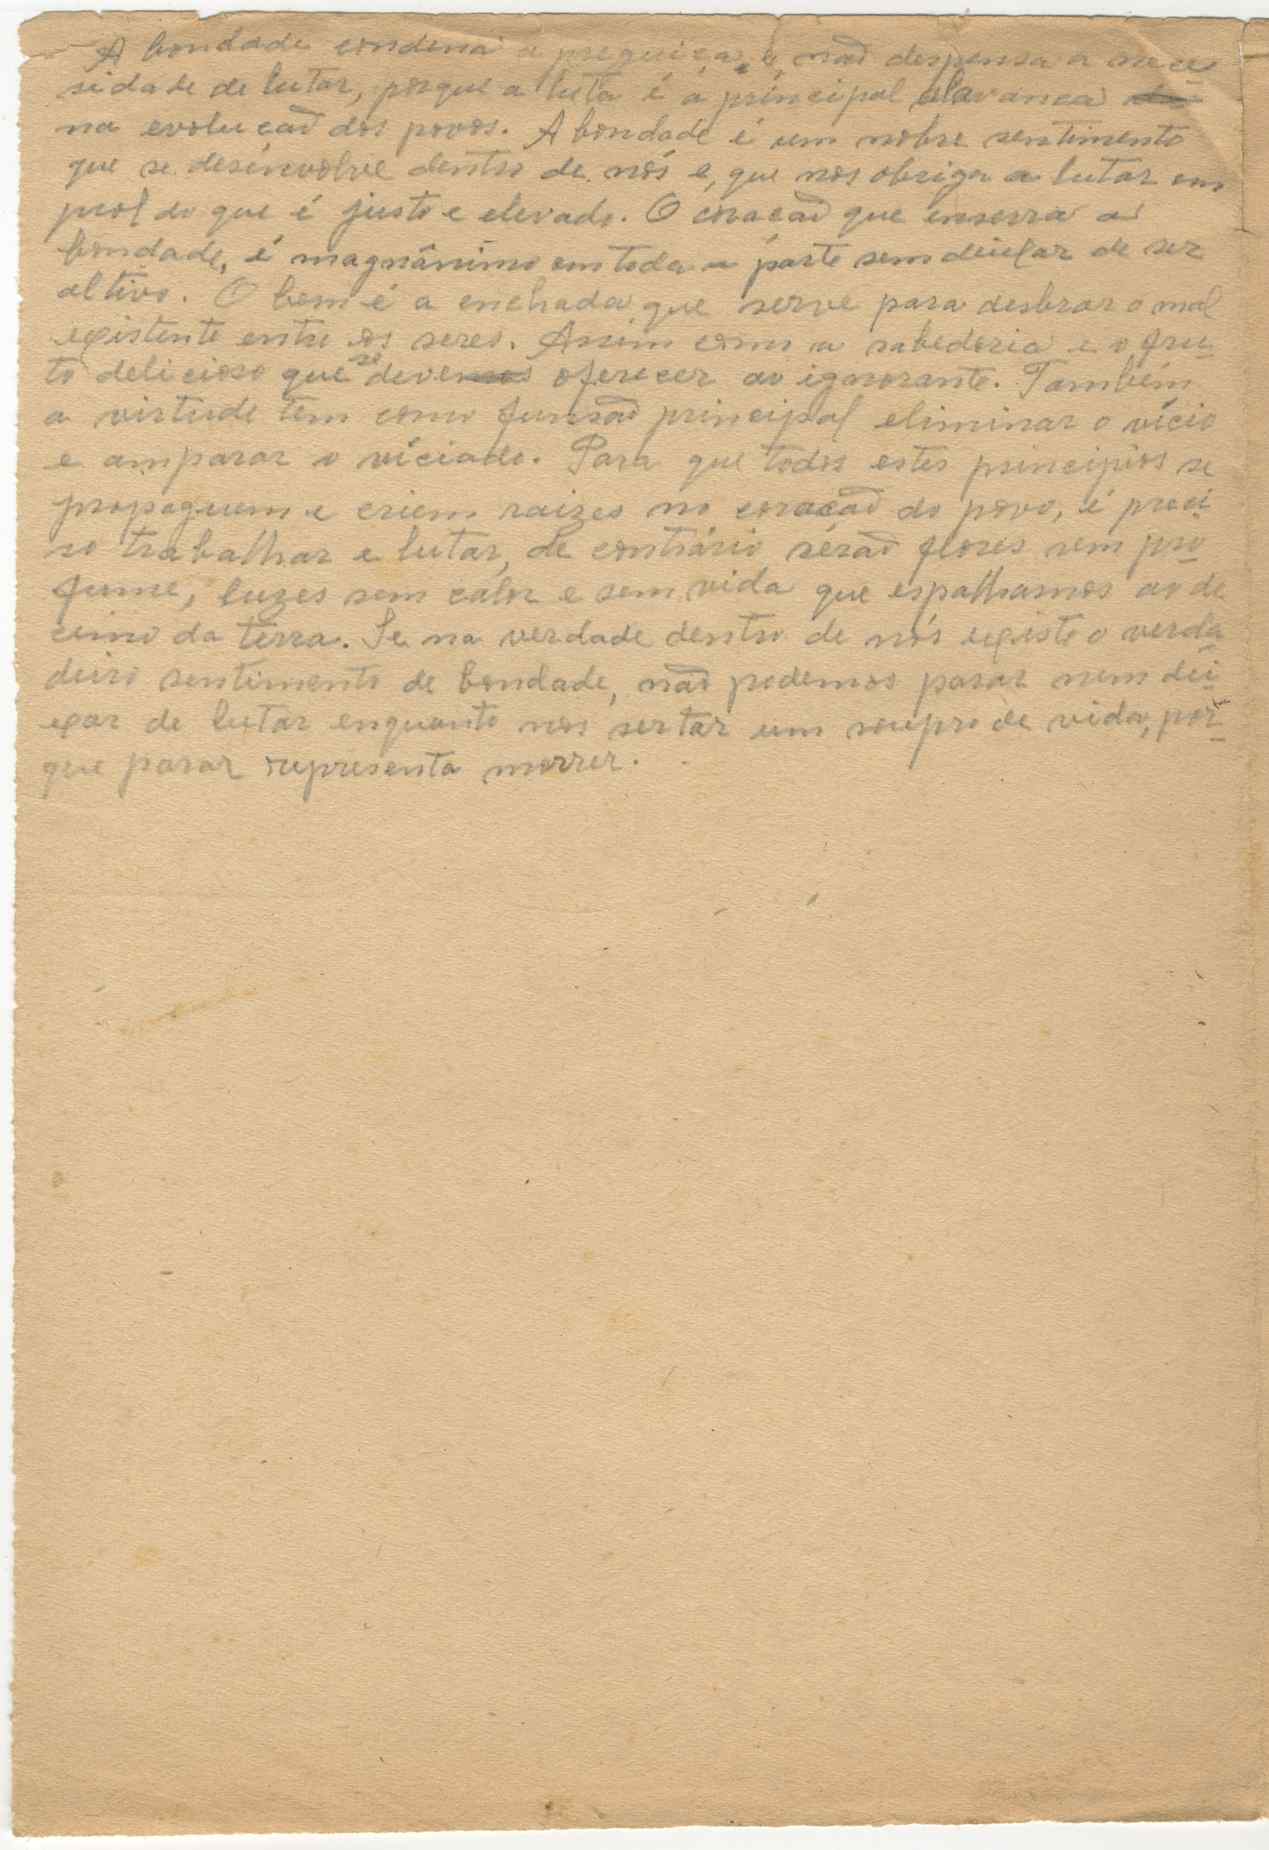 A bondade condena a preguiça, e não despensa a nece
sidade de lutar, porque a luta é a principal alavanca
na evolucão dos povos. A bondade é um nobre sentimento
que se desenvolve dentro de nós e, que nos obriga a lutar em
prol do que é justo e elevado. O coracão que enserra a
bondade, é magnânimo em toda a parte sem deichar de ser
altivo. O bem é a enchada que serve para desbrar o mal
existente entre os seres. Assim como a sabedoria e o fru-
to delicioso que se deve oferecer ao ignorante. Também
a virtude tem como funsão principal eliminar o vício
e amparar o víciado. Para que todos estes principios se
propaguem e criem raizes no coracão do povo, é preci-
so trabalhar e lutar, de contrário serão flores sem pro-
fume, luzes sem calor e sem vida que espalhamos ao de
cimo da terra. Se na verdade dentro de nós existe o verda-
deiro sentimento de bondade, não podemos parar nem dei-
xar de lutar enquanto nos sertar um soupro de vida, por-
que parar representa morrer.